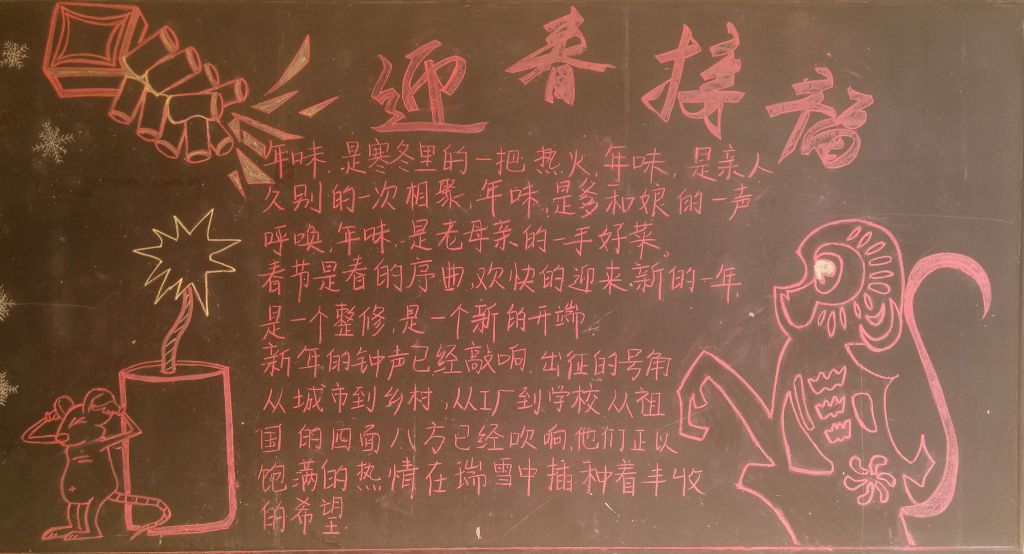 迎春接福
年味,是寒冬里的一把热火,年味,是亲人
久别的一次相聚,年味,是爹和娘的一声
呼唤,年味,是老母亲的一手好菜。
春节是春的序曲,欢快的迎来新的一年,
是一个整修,是一个新的开端。
新年的钟声已经敲响,出征的号角
从城市到乡村,从工厂到学校从祖
国的四面八方已经吹响,他们正以
饱满的热情在瑞雪中播种着丰收
的希望.